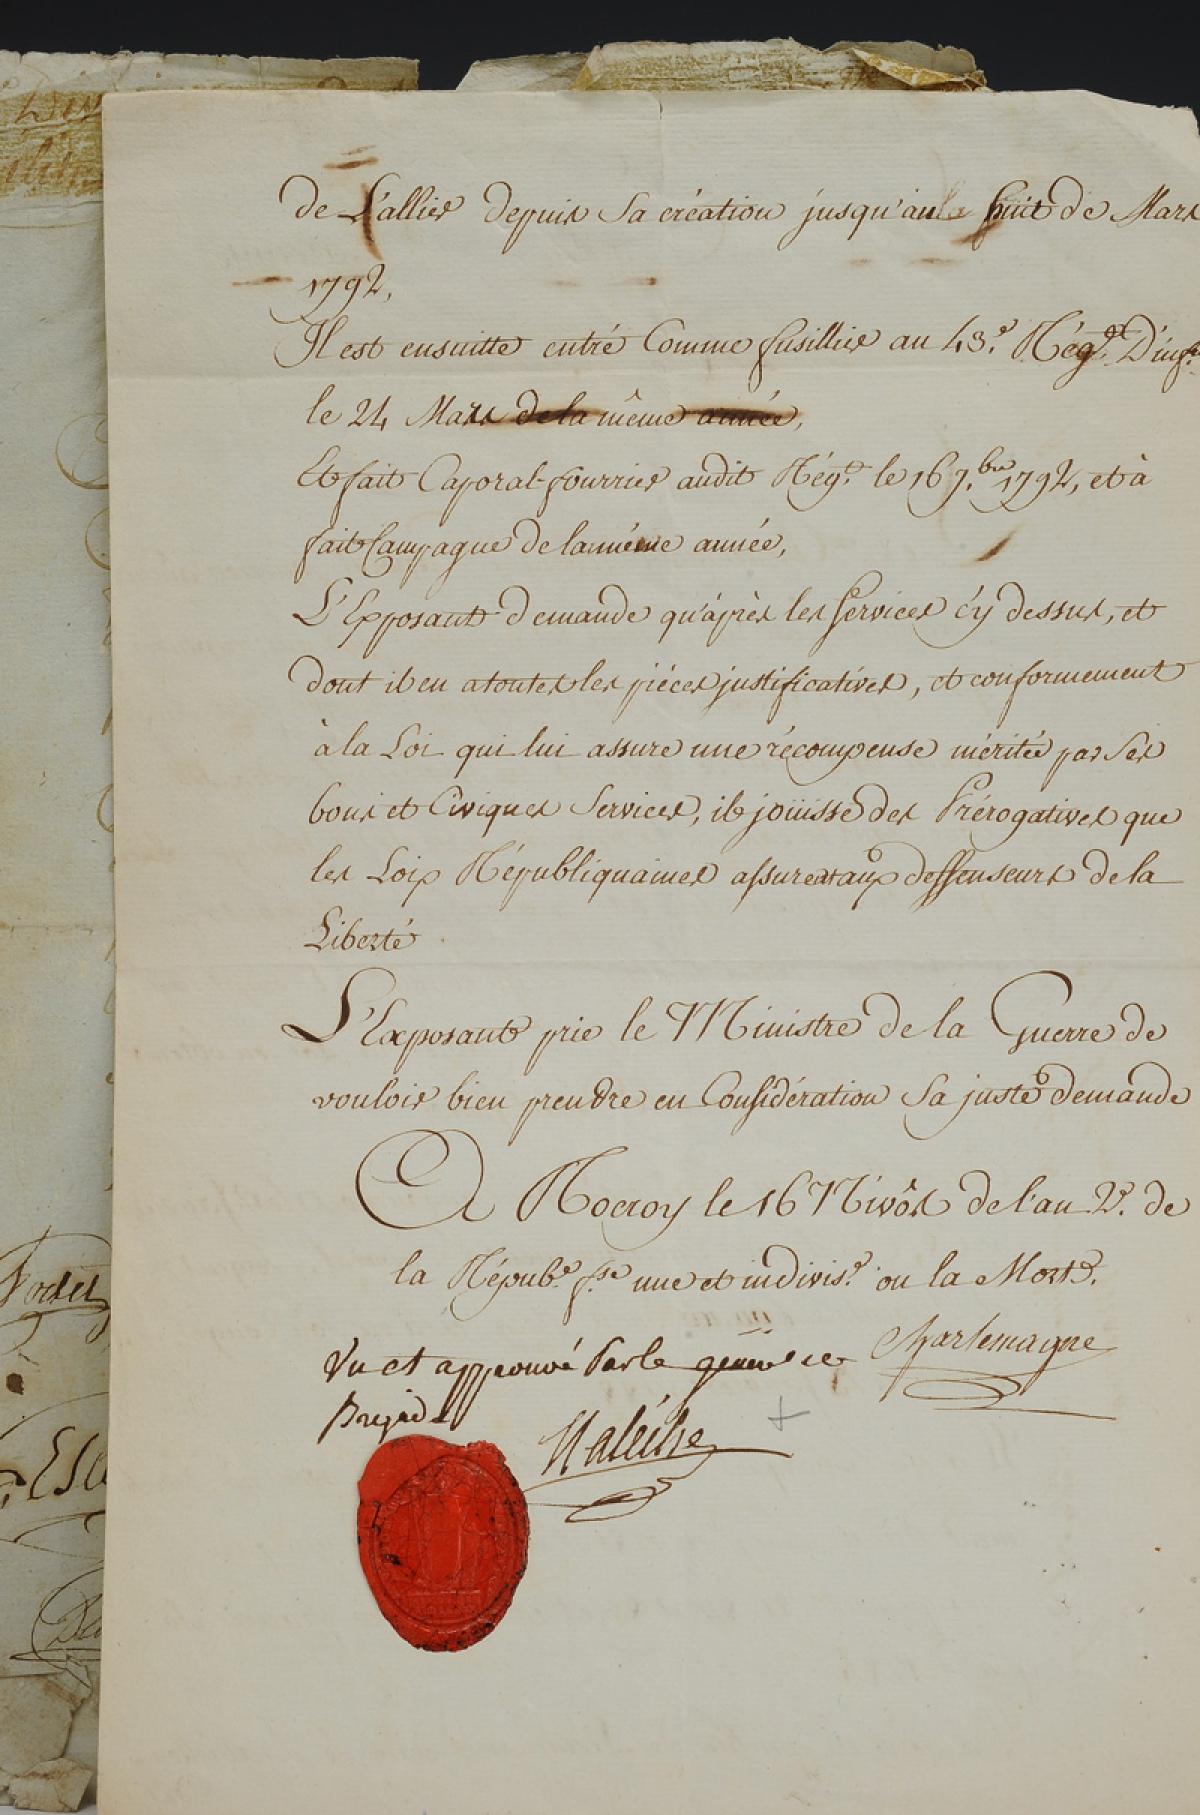 de L'allier depuis Sa création jusqu'au huit de Mars
1792,
Il est ensuitte entré Comme fusillier au 43.e Rég.t D'inf.
le 24 Mars de la même année,
Et fait Caporal-fourrier audit Rég.t le 16 9.bre 1792, et à
fait Campagne de la même année,
L'Exposant demande qu'après les Services cy dessus, et
dont il en a toutes les piéces justificatives, et conformement
à la Loi qui lui assure une récompense méritée par Ses
bons et Civiques Services, il joüisse des Prérogatives que
les Loix Républiquaines assurent aux deffenseurs de la
Liberté
L'Exposant prie le Ministre de la Guerre de
vouloir bien prendre en Considération Sa juste demande
A Rocroy le 16 Nivôs de l'an 2.e de
la Répub.e f.se une et indivis.e ou la Mort.
Charlemagne
Vu et approuvé Par le géneral de
Brigade